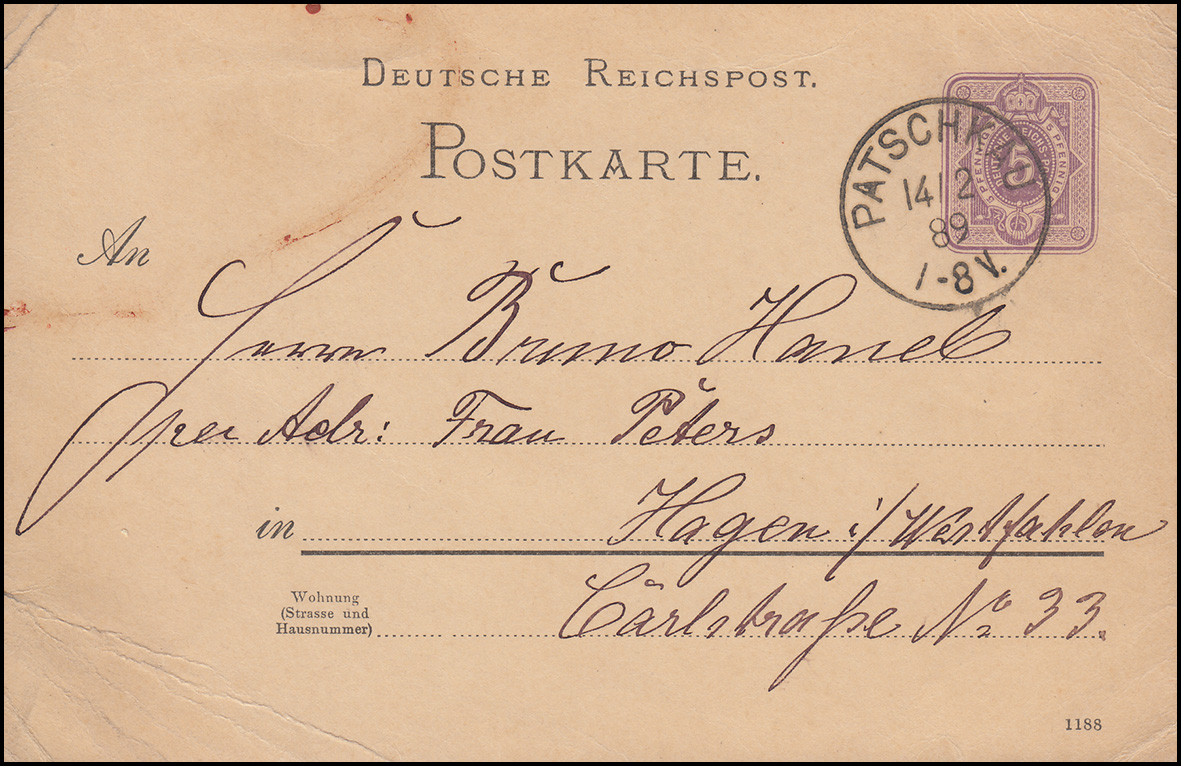 DEUTSCHE REICHSPOST.
POSTKARTE.
PATSCHKAU
14/2
89
7-8 V.
5 PFENNIG
DEUTSCHE REICHS-POST
5
5 PFENNIG
An
Herrn Bruno Hanel
per Adr: Frau Peters
in Hagen i/Westfahlen
Wohnung
(Strasse und
Hausnummer)
Carlstraße No 33.
1188